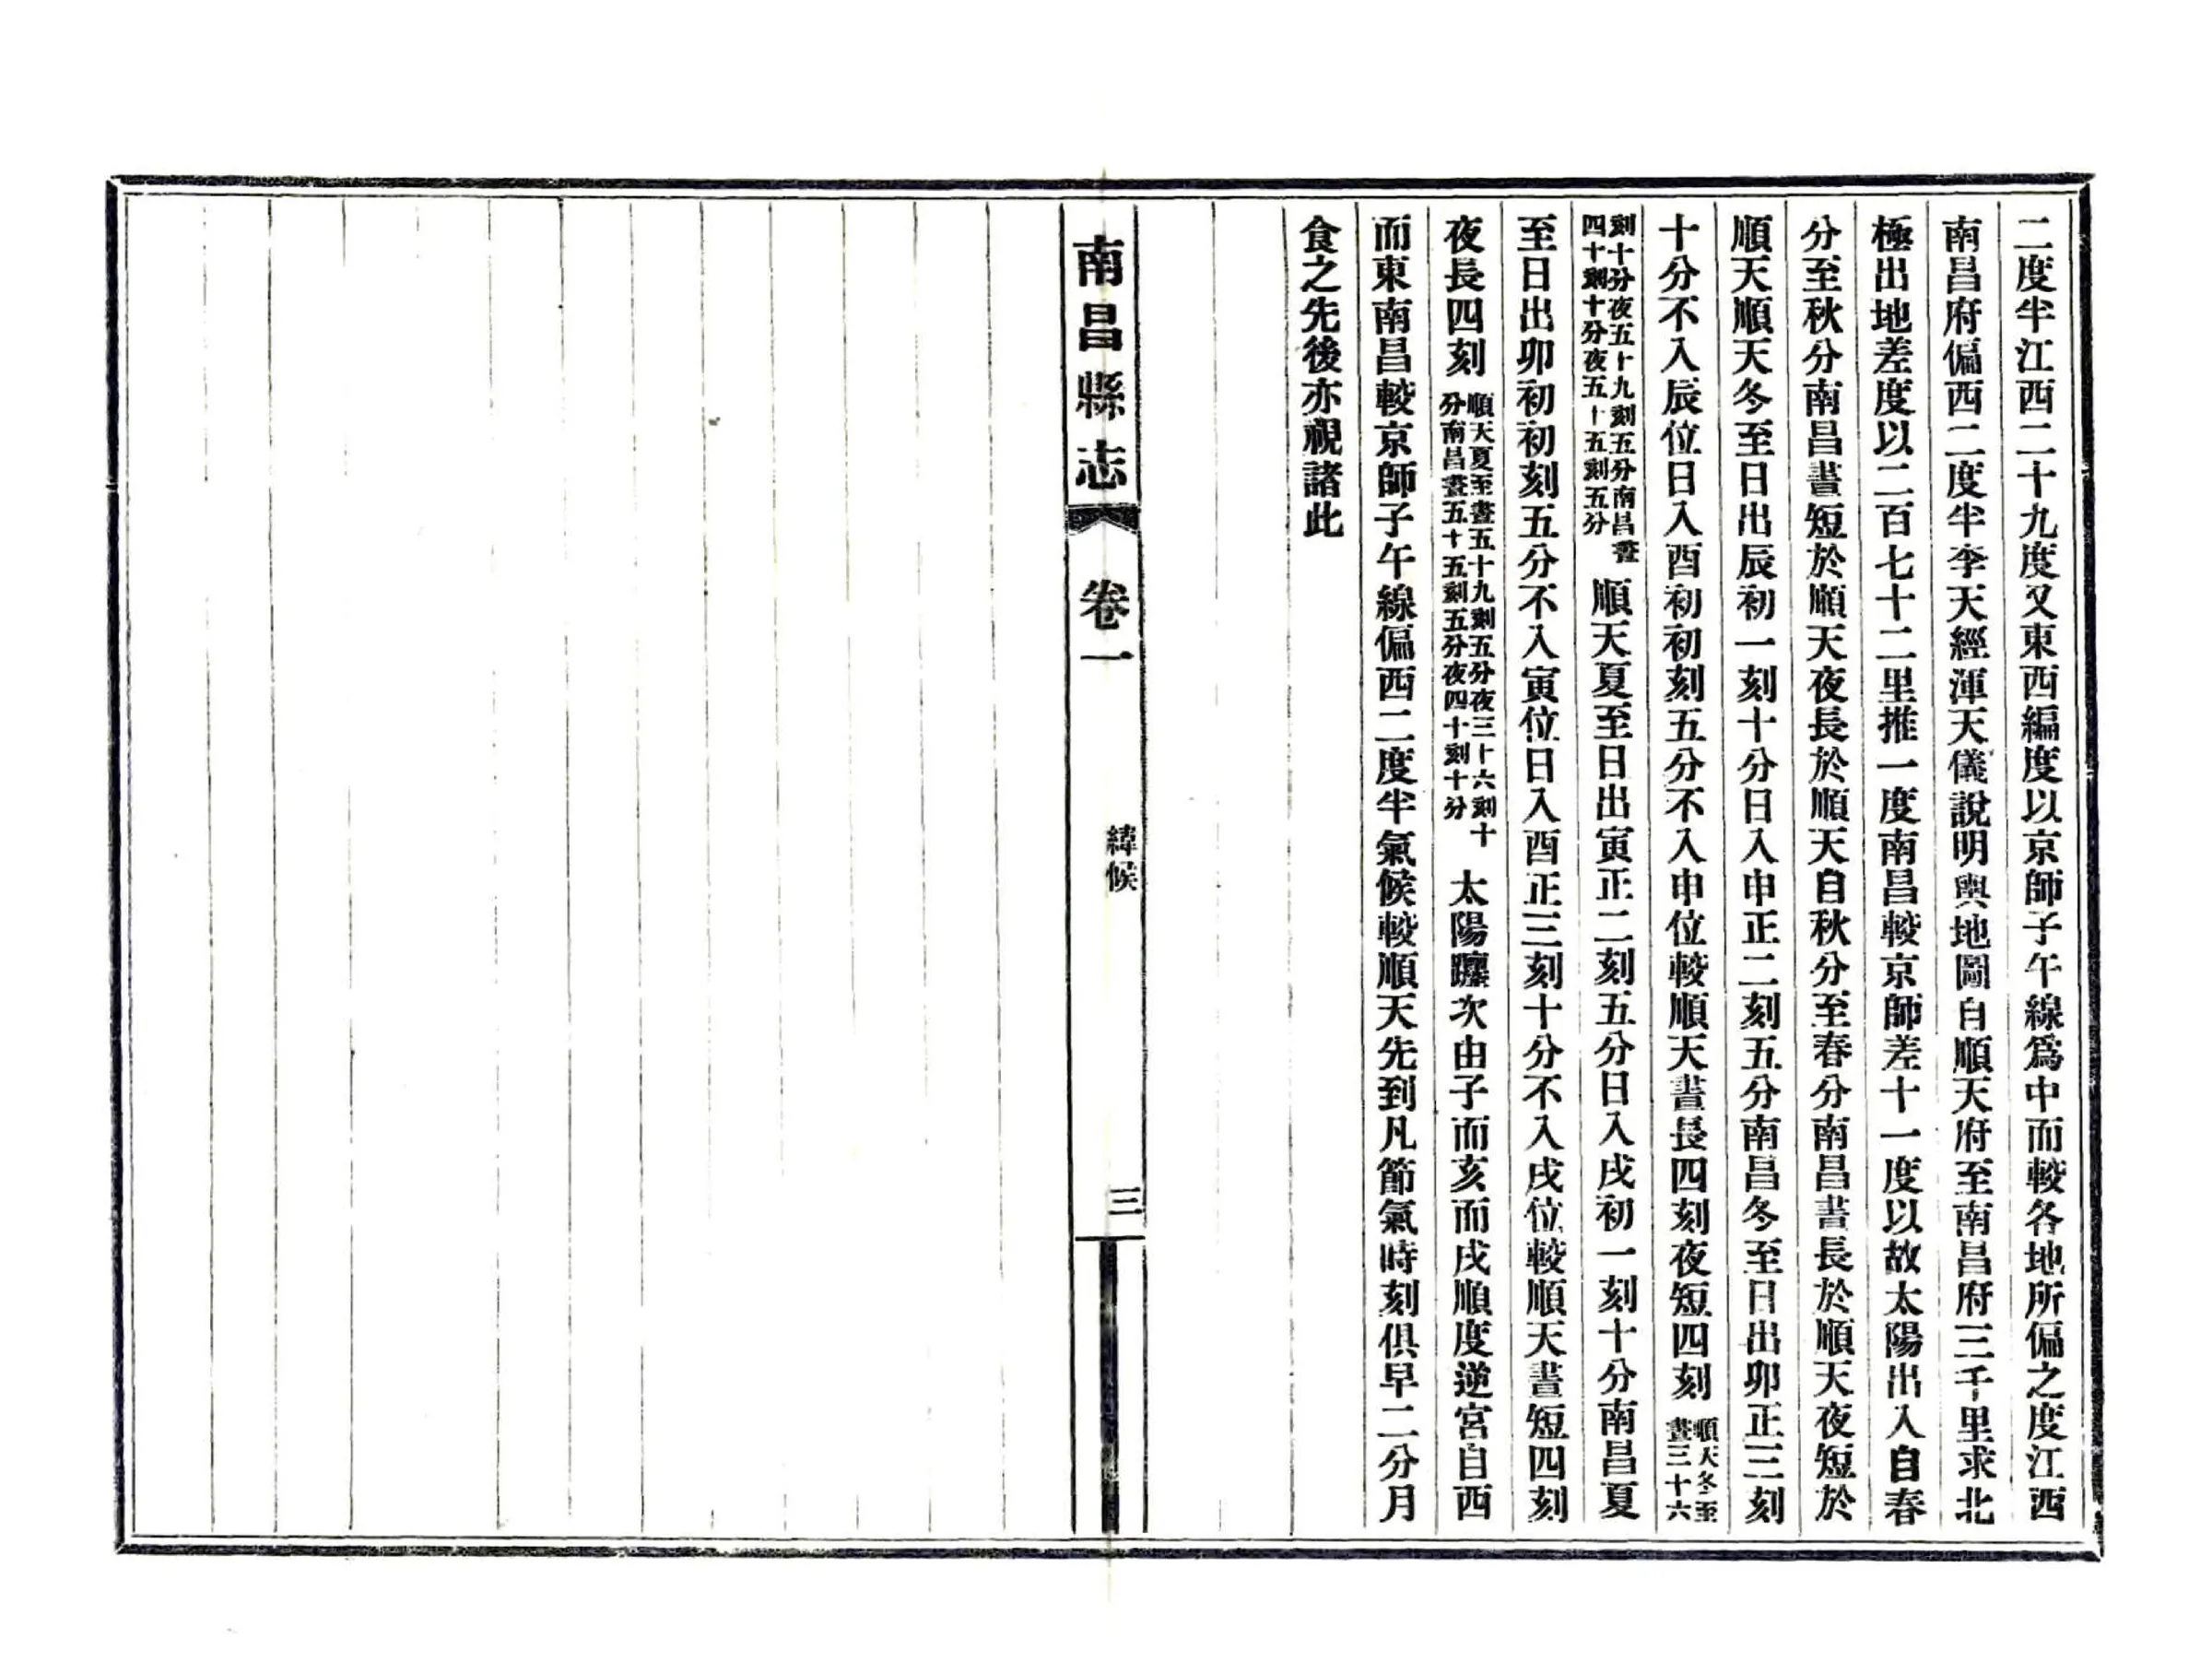 二度半江西二十九度又東西編度以京師子午線爲中而較各地所偏之度江西
南昌府偏西二度半李天經渾天儀說明輿地圖自順天府至南昌府三千里求北
極出地差度以二百七十二里推一度南昌較京師差十一度以故太陽出入自春
分至秋分南昌晝短於順天夜長於順天自秋分至春分南昌晝長於順天夜短於
順天順天冬至日出辰初一刻十分日入申正二刻五分南昌冬至日出卯正三刻
十分不入辰位日入酉初初刻五分不入申位較順天晝長四刻夜短四刻順天冬至晝三十六
刻十分夜五十九刻五分南昌晝四十刻十分夜五十五刻五分順天夏至日出寅正二刻五分日入戌初一刻十分南昌夏
至日出卯初初刻五分不入寅位日入酉正三刻十分不入戌位較順天晝短四刻
夜長四刻順天夏至晝五十九刻五分夜三十六刻十分南昌晝五十五刻五分夜四十刻十分太陽躔次由子而亥而戌順度逆宮自西
而東南昌較京師子午線偏西二度半氣候較順天先到凡節氣時刻俱早二分月
食之先後亦視諸此
南昌縣志
卷一
緯候
三